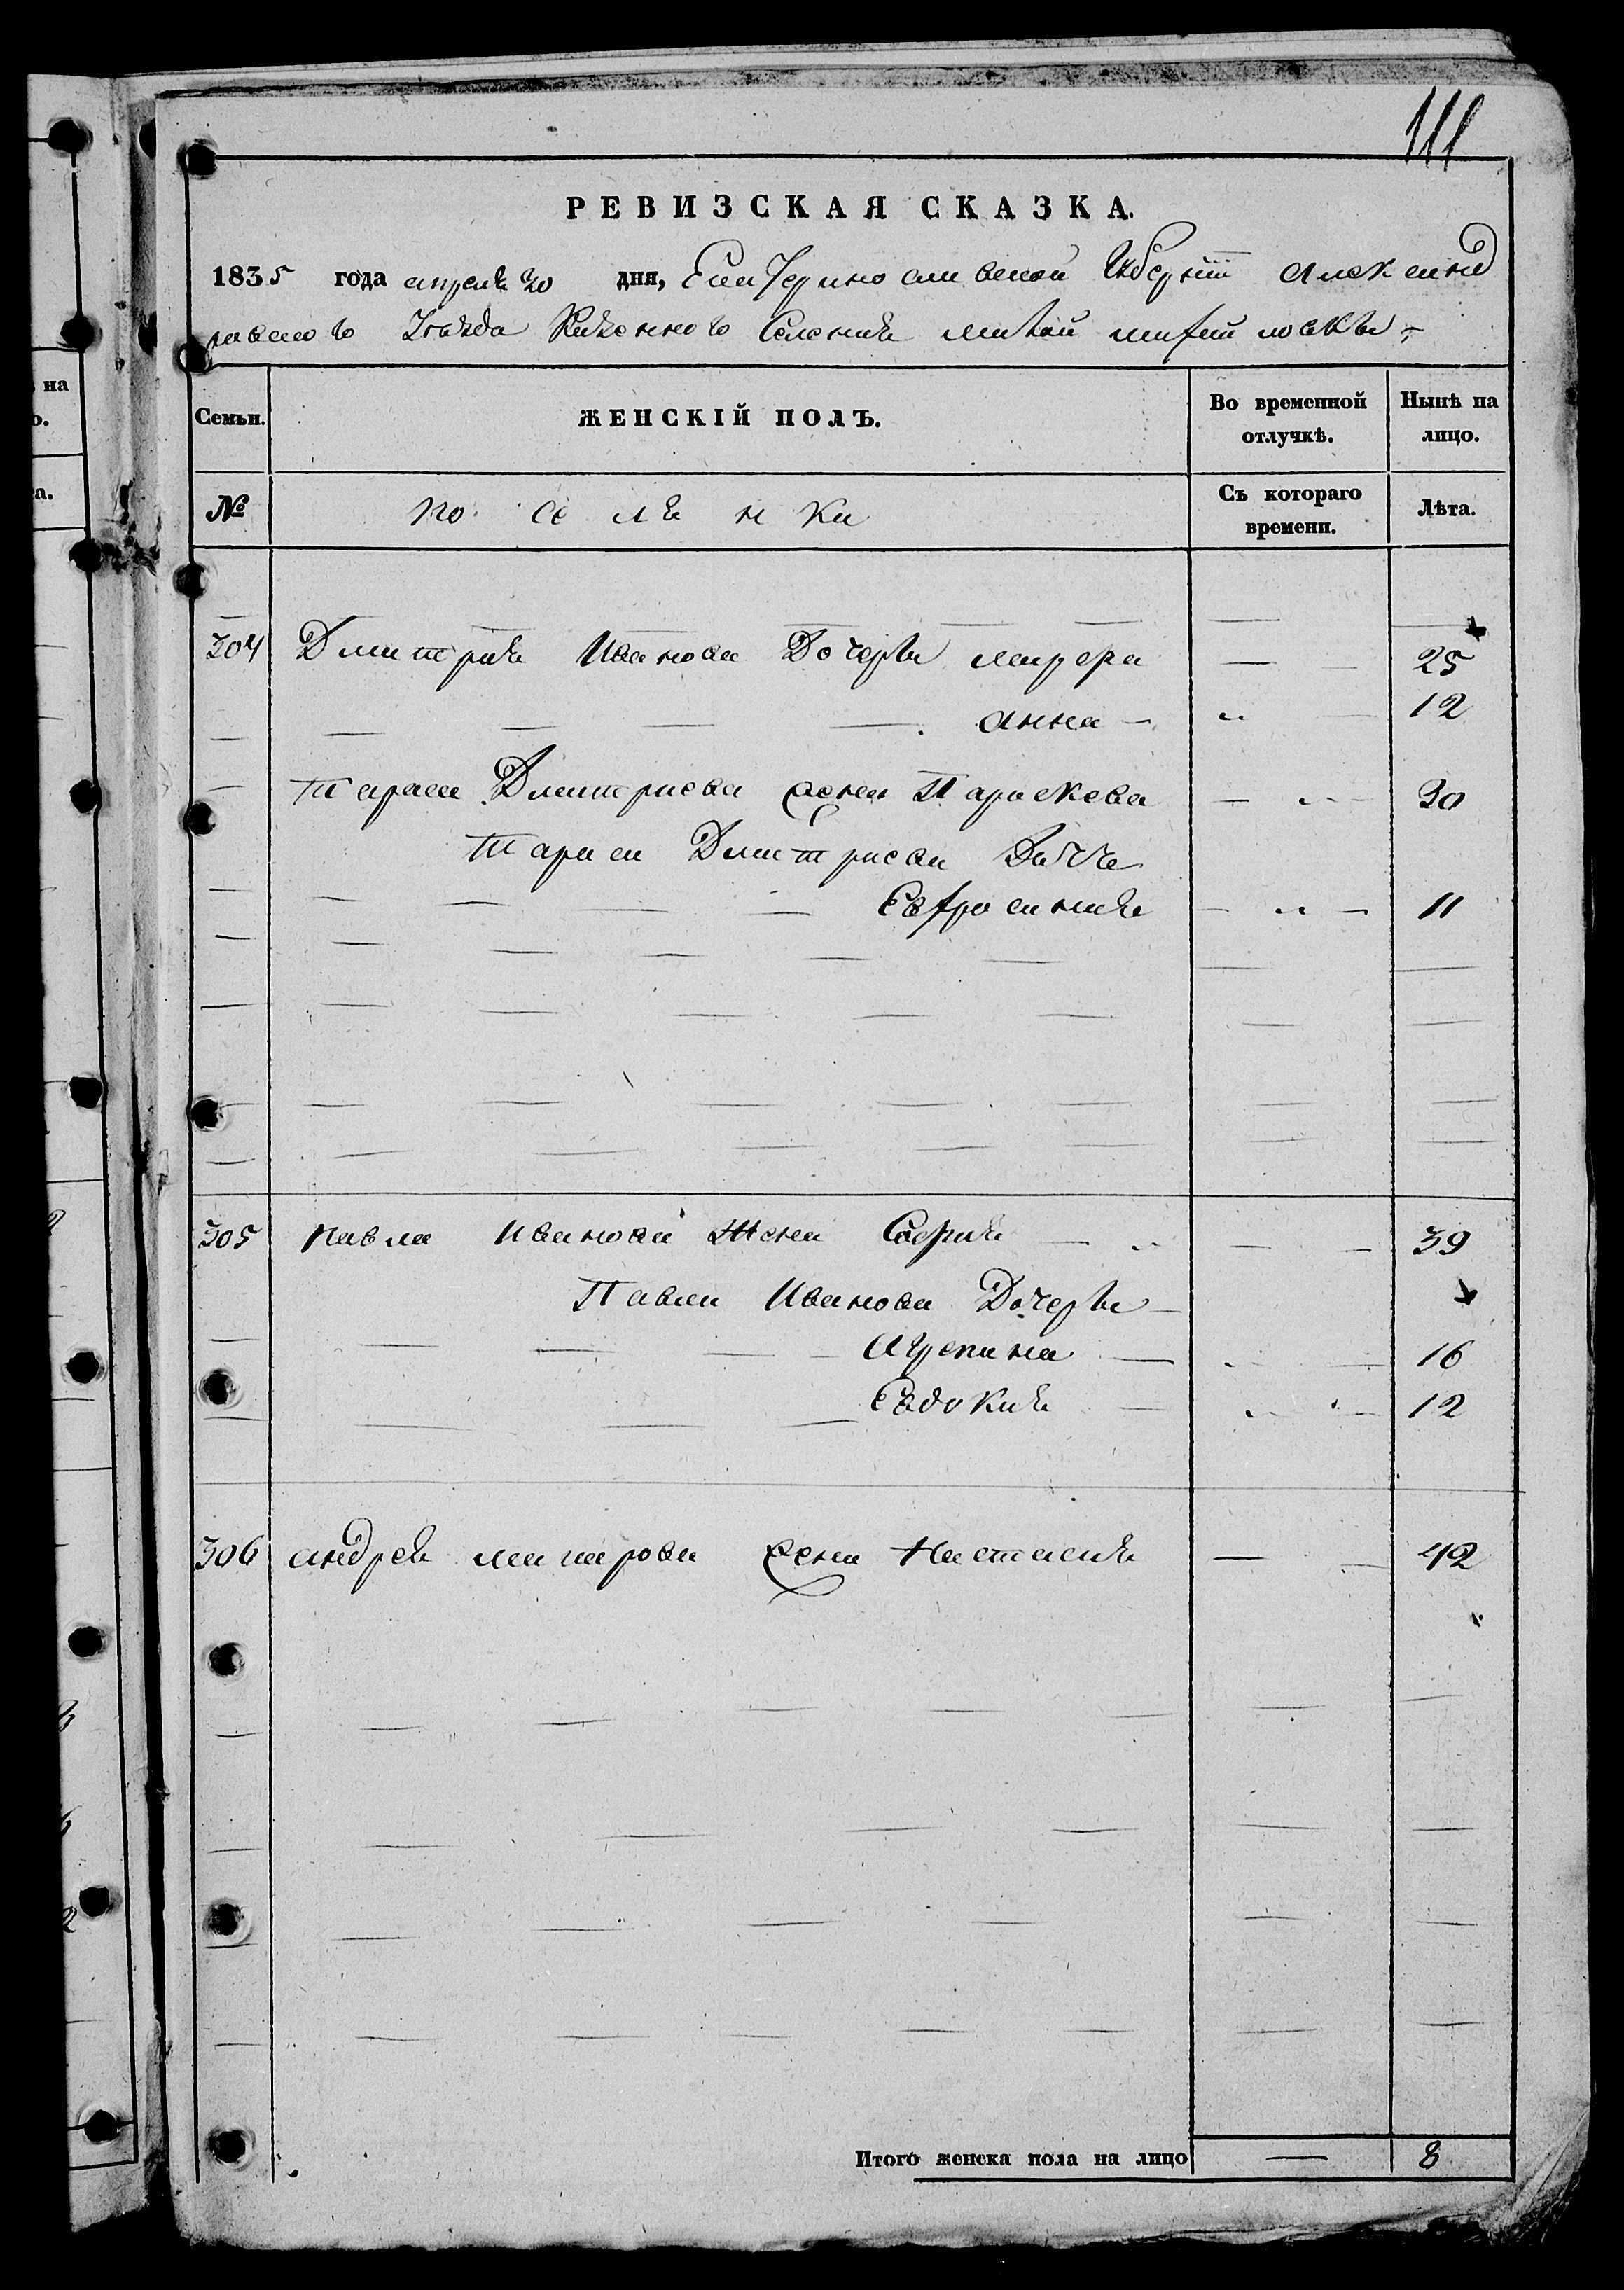 111
РЕВИЗСКАЯ СКАЗКА.
1835 года апреля 20 дня, Екатеринославской Губернии Александ
ровского Уезда Казенного Селения
Семьи. ЖЕНСКІЙ ПОЛЪ. Во временной отлучкѣ. Нынѣ на лицо.
№ поселянки Съ котораго времени. Лѣта.
304 Дмитрия Иванова Дочери 25
анна 12
тараса Дмитриева жена Параскева 30
тараса Дмитриева Дочь
Евфросиния 11
305 павла Иванова Жена София 39
Павла Иванова Дочери
Агрепина 16
Евдокия 12
306 андрея жена Настасия 42
Итого женска пола на лицо — 8
на
о.
а.